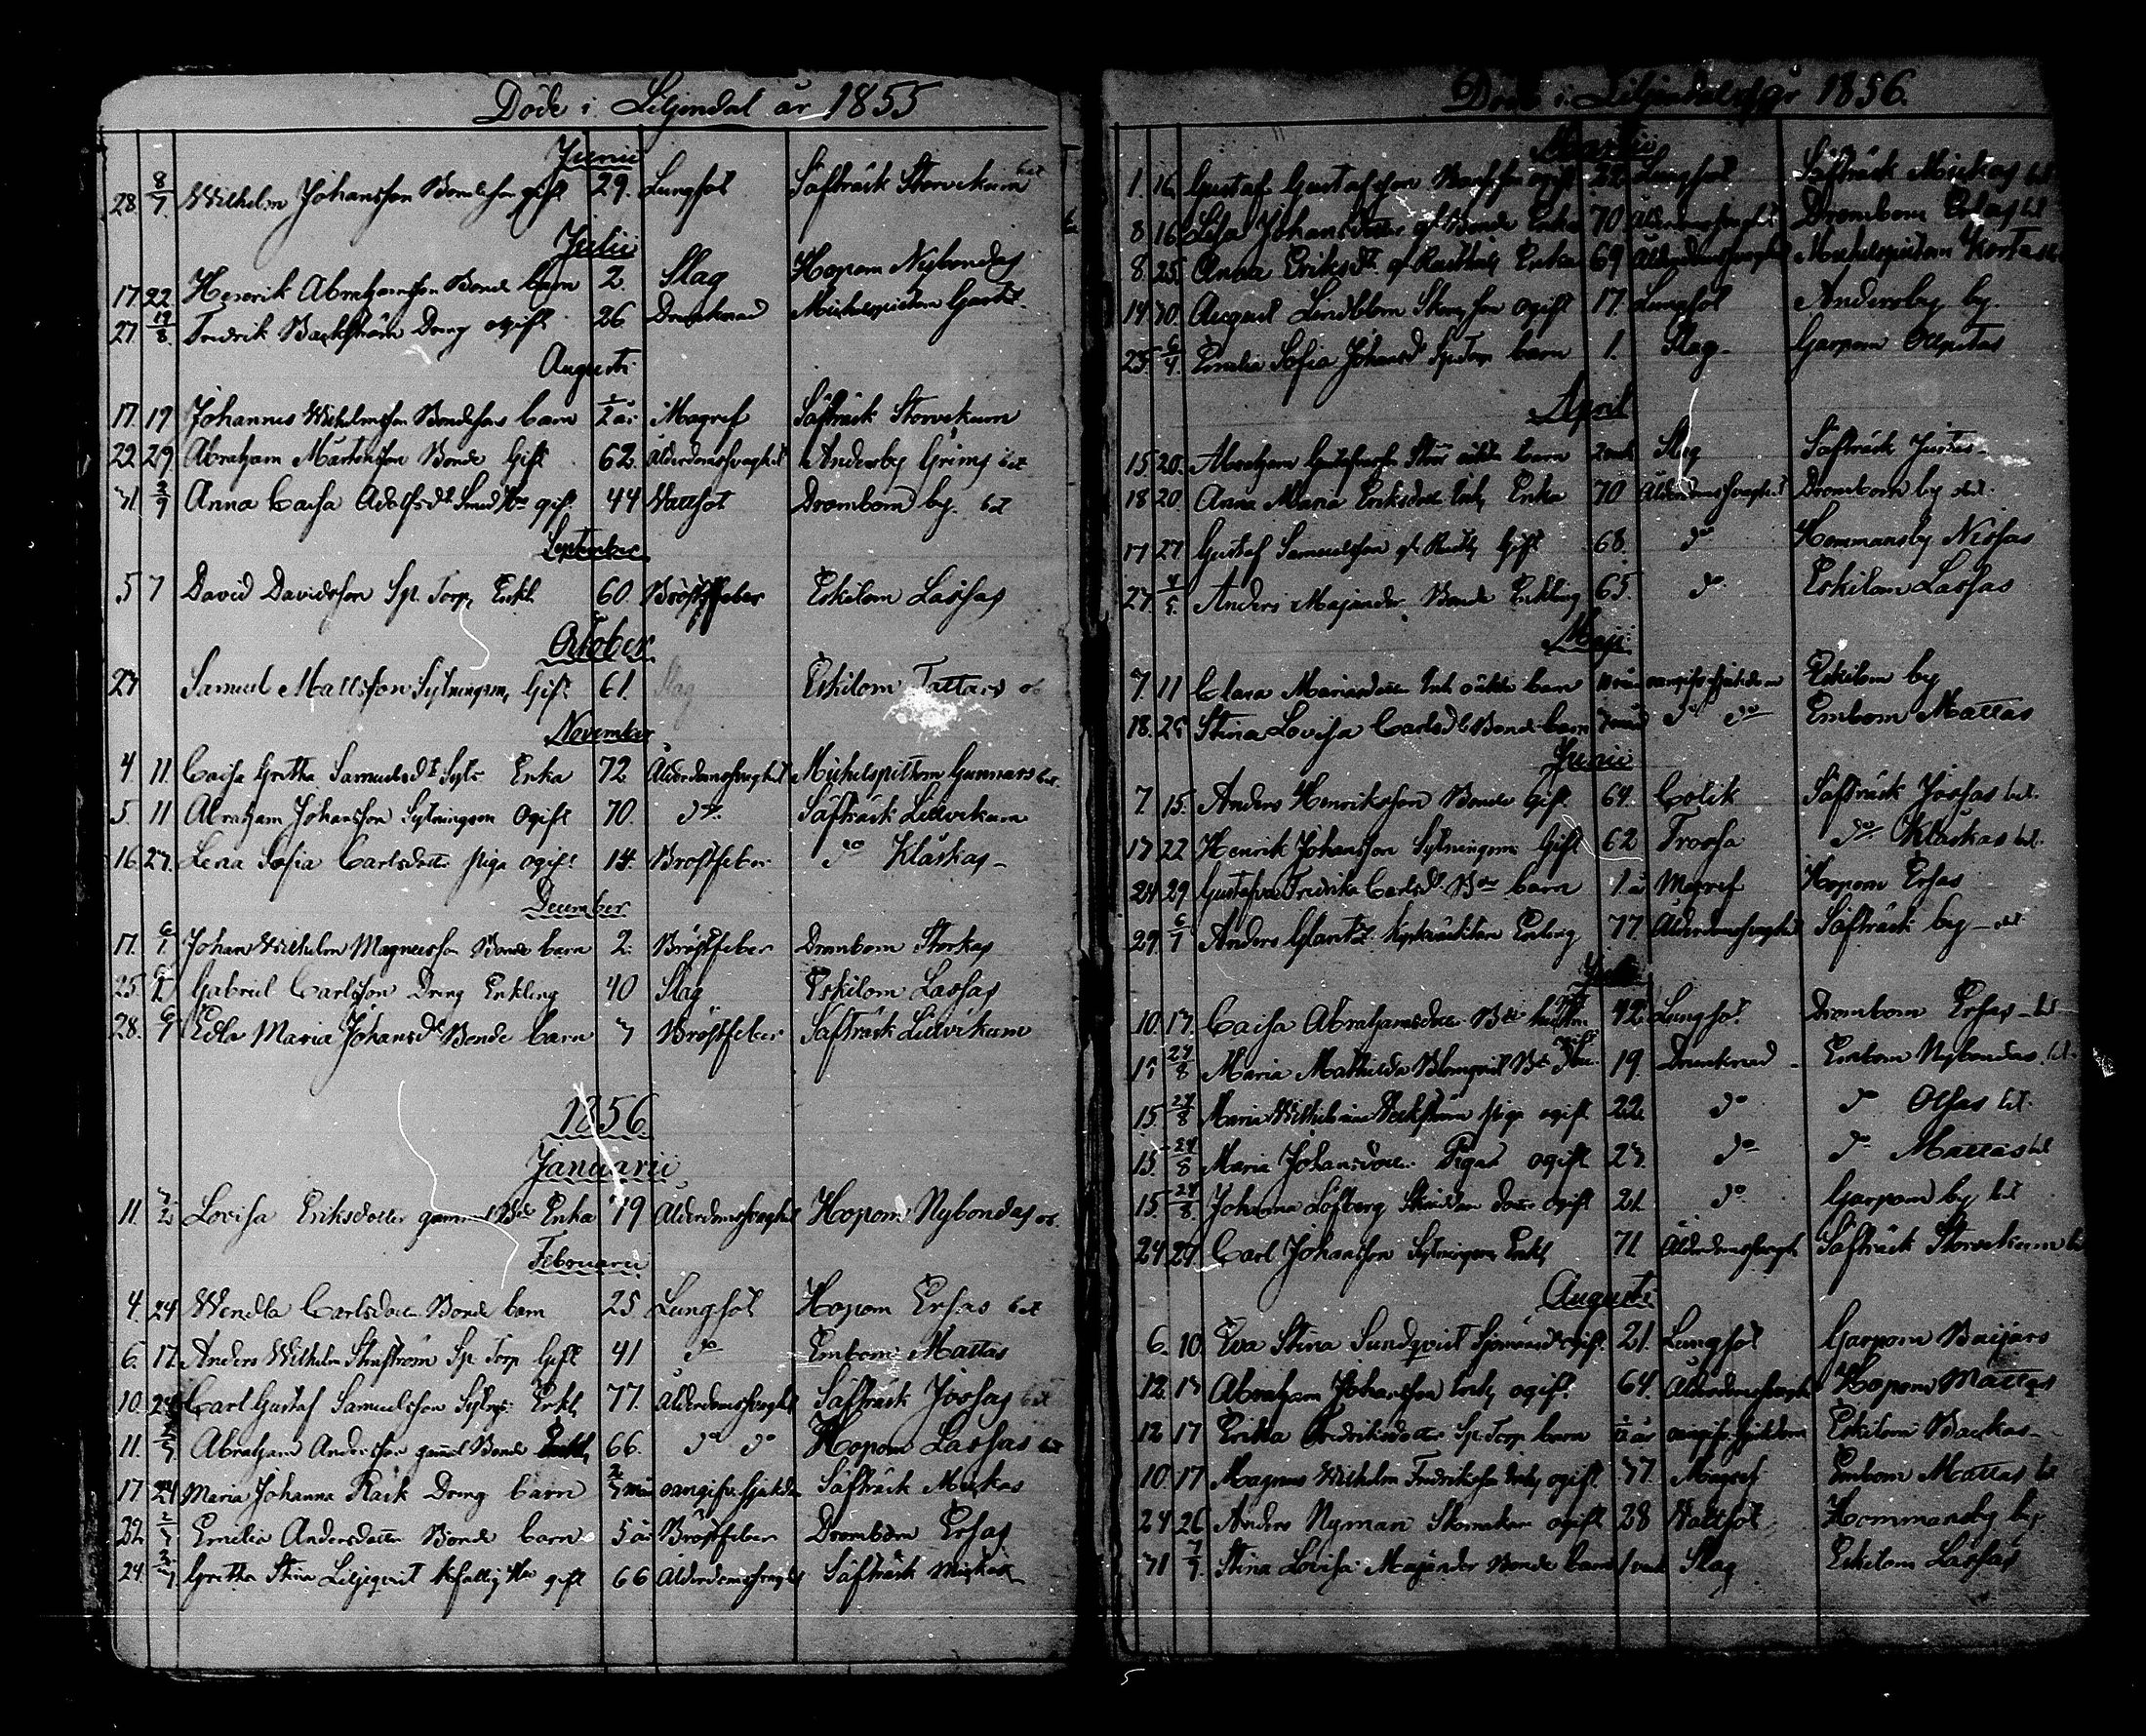 Döde i Liljendal år 1855
Junii
28. 8/7. Wilhelm Johansson Bondeson gift 29. Lungsot Säfträsk Storvekum bet
Julii
17 22 Henrik Abrahamsson Bonde barn 2. Slag Hopom Nybondas
27 19/8. Fredrik Backström Dreng ogift 26 Drunknad Mickelspiltom
Augusti
17 19 Johannes Wilhelmsson Bondesons barn 1/2 år Magref Säfträsk Storvekum
22 29 Abraham Mårtensson Bonde Gift 62. Ålderdomssvaghet Andersby Grims bet
31 2/9 Anna Caisa Adolfsdr gift 44 Wattsot Drombom by. bet
September
5 7 David Davidsson Sp. Torp. Enkl. 60. Bröstfeber Eskilom Lassas
October
27 Samuel Mattsson Sytningsm, Gift 61. Slag Eskilom Tattars
November
4 11. Caisa Gretha Samuelsdr Sytn Enka 72 Ålderdomssvaghet Mickelspiltom Gunnars bet.
5. 11 Abraham Johansson Sytningsm Ogift 70. do Säfträsk Lillvekum
16 27. Lena Sofia Carlsdotter piga ogift 14. Bröstfeber do Klaskas
December
17. 6/1. Johan Wilhelm Magnusson Bonde barn 2. Bröstfeber Drombom Storkas
25. 6/1 Gabriel Carlsson Dreng Enkling 40 Slag Eskilom Lassas
28. 6/1 Edla Maria Johansdr Bonde barn 3 Bröstfeber Säfträsk Lillvekum
1856.
Januarii
11. 3/2 Lovisa Eriksdotter gammal Bde Enka 79 Ålderdomssvaghet Hopom Nybondas
Februarii
4. 24 Wendla Carlsdotter Bonde barn 25 Lungsot Hopom Ersas bet
6. 17 Anders Wilhelm Sp. Torp Gift 41 do Embom Mattas
10. 24 Carl Gustaf Samuelsson Sytngs: Enkl, 77. Ålderdomssvaghet Säfträsk Jossas bet
11. 2/3 Abraham Andersson gammal Bonde Enkl, 66. do do Hopom Lassas bet
17 24 Maria Johanna Räsk Dreng barn 3 mån oangifn sjukdom Säfträsk Mickas
22 2/3 Emelia Andersdotter Bonde barn 5 år Bröstfeber Drombom Ersas
24 2/3 Gretha Stina Liljeqvist gift 66 Ålderdomssvaghet Säfträsk Mickas
Döde i Liljendal år 1856.
Martii
1. 16 Gustaf Gustafsson ogift 22 Lungsot Säfträsk Mickas bet
8 16 Lisa Johansdotter gl Bonde Enka 70 Ålderdomssvaghet Drombom Ersas bet
8. 25. Anna Eriksdr gl Enka 69 Ålderdomssvaghet Mickelspiltom
14 30. August Lindblom ogift 17. Lungsot Andersby by.
25 6/4 Emelia Sofia Johansdr Sp Torp barn 1. Slag Garpom
April
15 20. Abraham Gustafsson barn Slag Säfträsk
18 20. Anna Maria Eriksdotter Inh, Enka 70 Ålderdomssvaghet Drombom by bet.
17 27 Gustaf Samuelsson Gift 68. do Hommansby Nissas
27. 4/5. Anders Majander Bonde Enkling 65. do Eskilom Lassas
Maji
7. 11 Clara Mariasdotter Inh barn oangifn sjukdom Eskilom by
18. 25 Stina Lovisa Carlsdr Bonde barn do do Embom Mattas
Junii
7. 15. Anders Henriksson Bonde Gift 64. Colik Säfträsk Jossas bet.
17 22 Henrik Johansson Sytningsm Gift 62 Frossa do Klaskas bet.
24 29 Gustafva Fredrika Carlsdr Bde barn 1. å Magref Hopom Ersas
29. 6/7 Anders Glantz Enkling 77. Ålderdomssvaghet Säfträsk by
Julii
10. 13. Caisa Abrahamsdotter Bde 42 Lungsot Drombom Ersas bet
15 24/8 Maria Mathilda Blomqvist 19. Drunknad Embom Nybondas bet.
15 24/8 Maria Wilhelmina piga ogift 22. do do Olsas bet.
15. 24/8 Maria Johansdotter Pigas ogift 23. do do Mattas bet
15. 24/8 Johanna Löfberg dotter ogift 21. do Garpom by bet
24 27. Carl Johansson Sytningsm Enkl, 71 Ålderdomssvaghet Säfträsk Storvekum bet
Augusti
6. 10. Eva Stina Sundqvist ogift. 21. Lungsot Garpom Baijars
12. 13 Abraham Johansson Inh, ogift. 64. Ålderdomssvaghet Hopom Mattas
12 17 Erika Fredriksdotter Sp. Torp barn 1/2 år oangifn sjukdom Eskilom Backas
10. 17 Magnus Wilhelm Fredriksson Inh, ogift. 37. Magref Embom Mattas bet
24 26 Anders Nyman Skomakare ogift 28 Wattsot Hommansby by
31 7/9. Stina Lovisa Majander Bonde barn Slag Eskilom Lassas
5